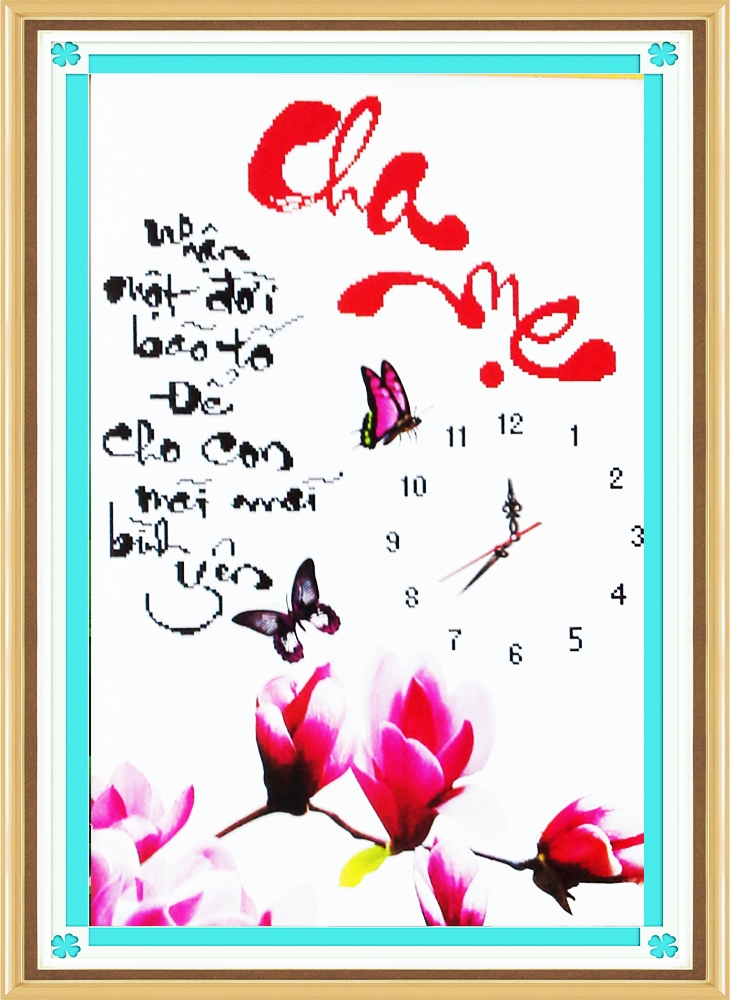 Cha
Mẹ
Nhận
một đời
bão tố
Để
cho con
mãi mãi
bình
yên
12
11
1
10
2
9
3
8
4
7
5
6